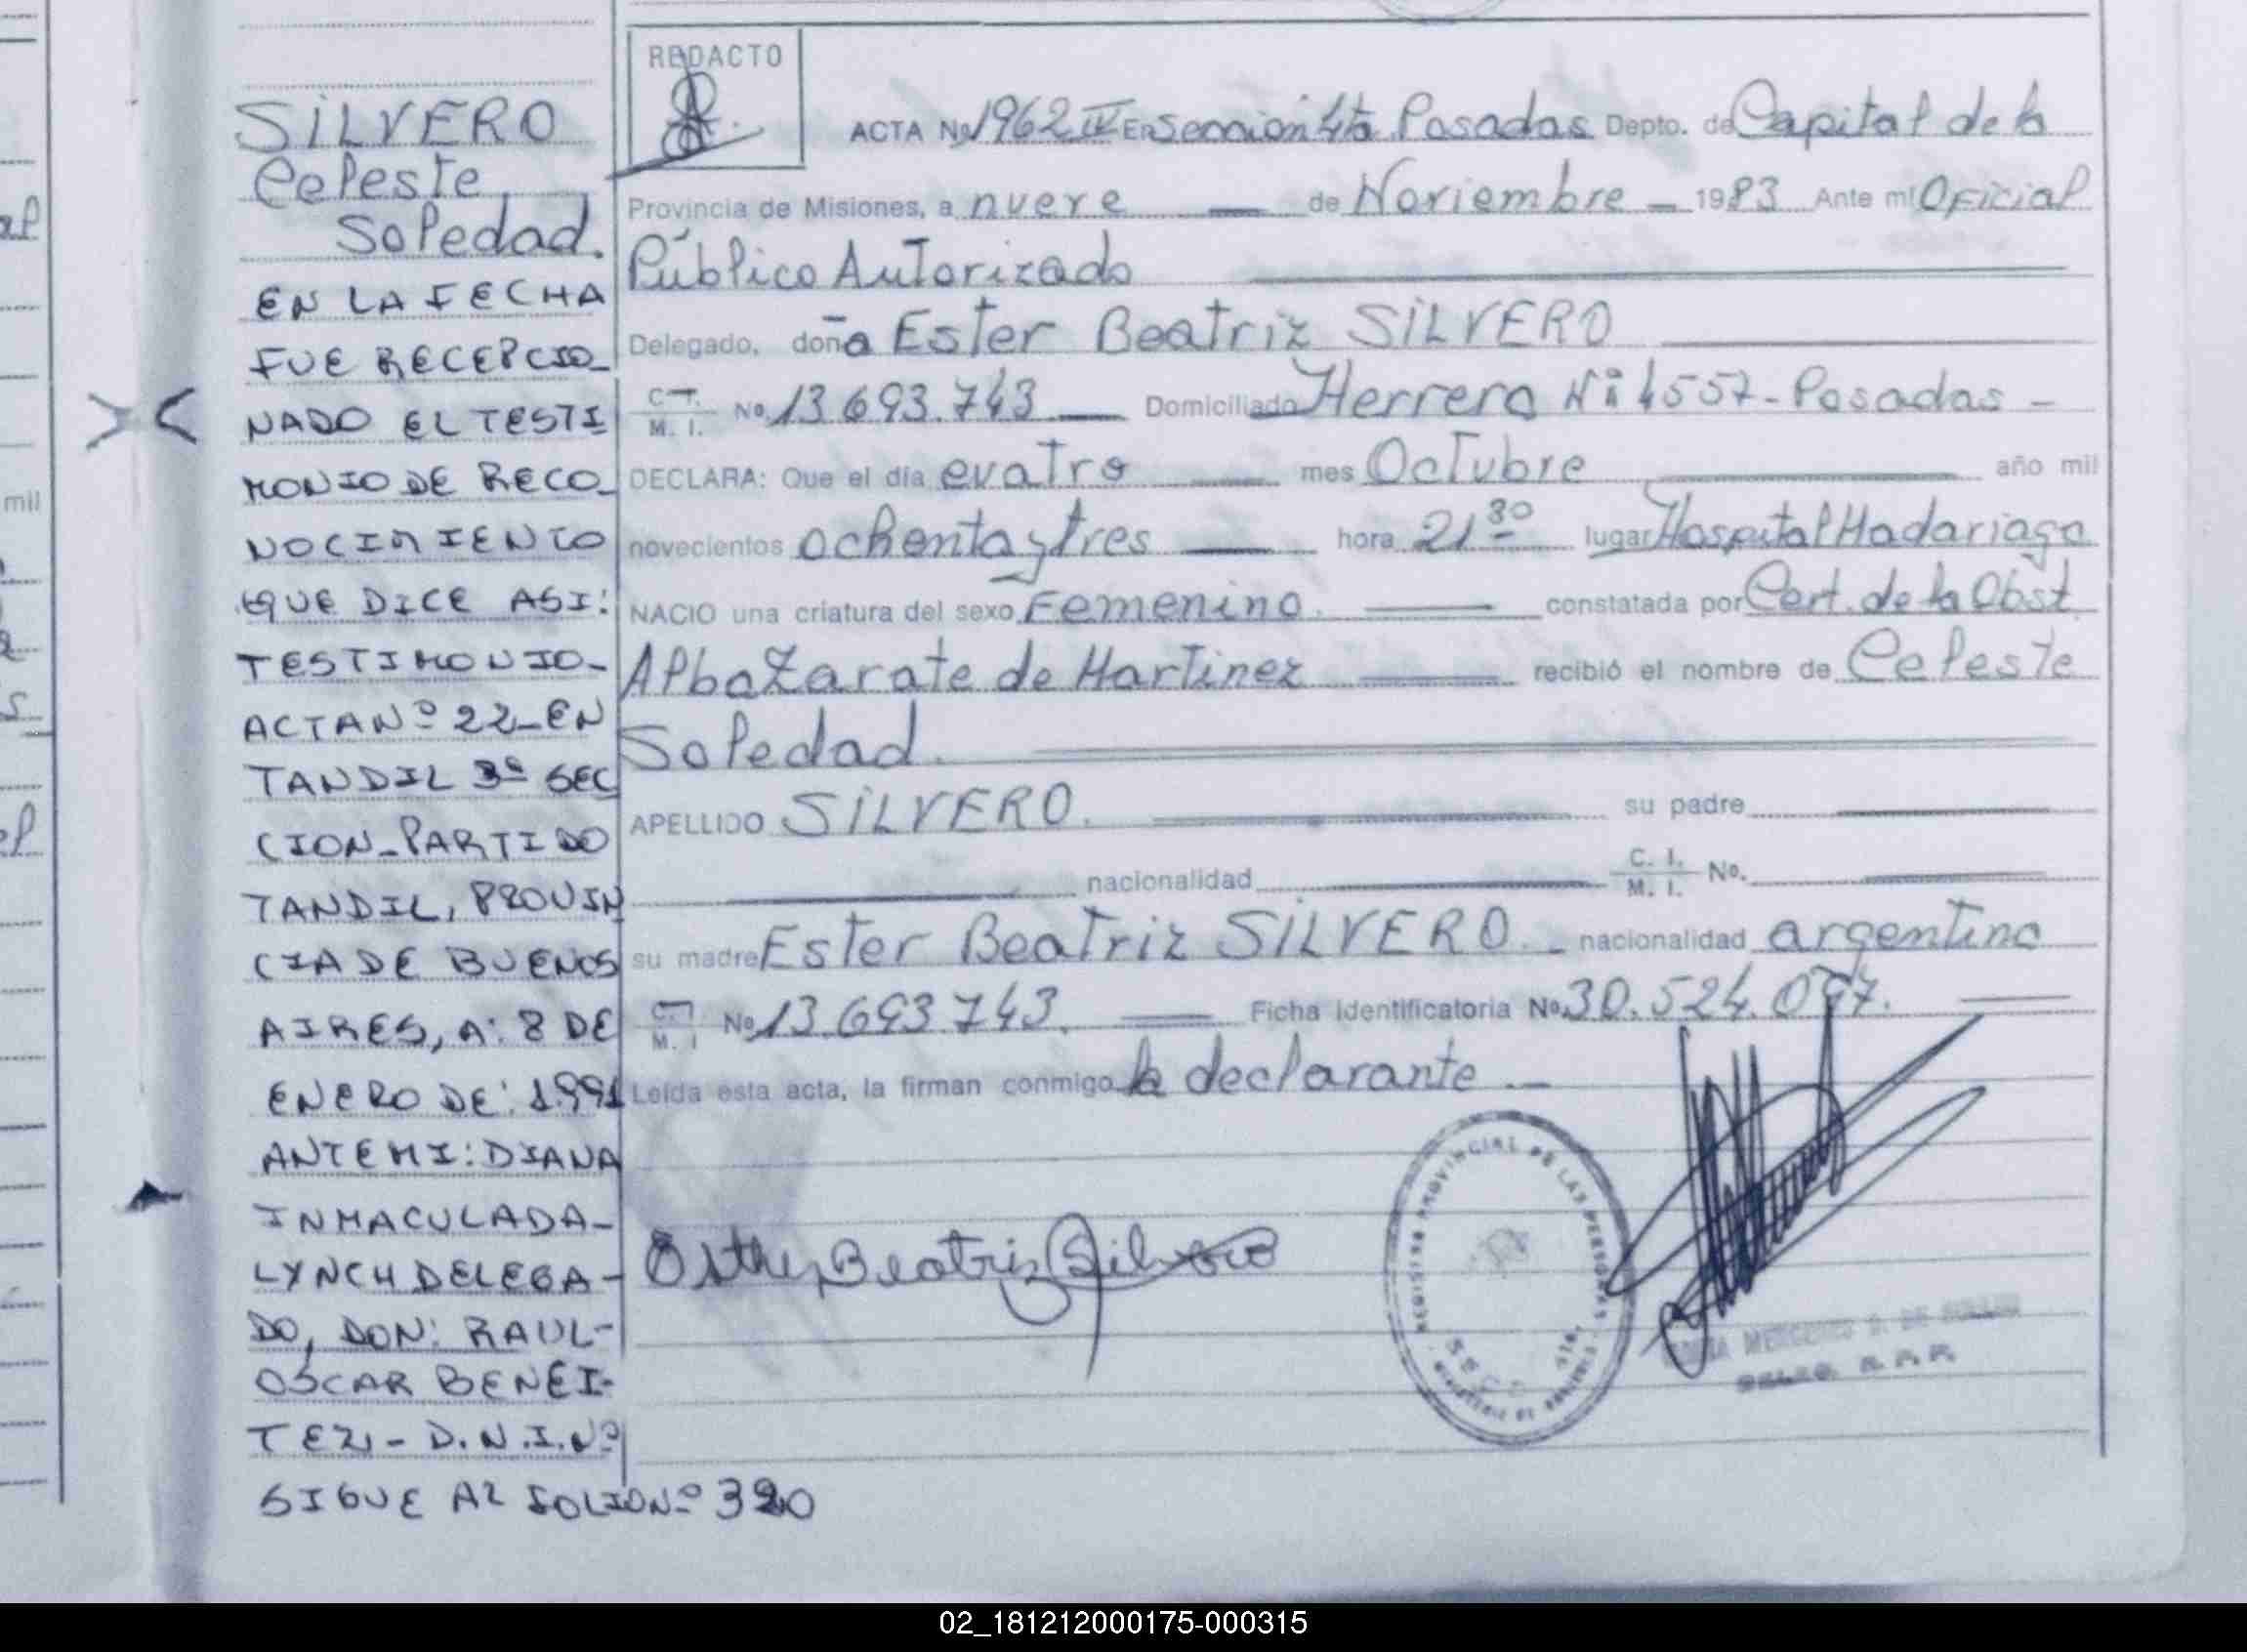 SILVERO
Celeste
Soledad.
EN LA FECHA
FUE RECEPCIO_
NADO EL TESTI
MONIO DE RECO_
NOCIMIENTO
QUE DICE ASI:
TESTIMONIO_
ACTA Nº 22_EN
TANDIL 3ª SEC
CION_PARTIDO
TANDIL, PROVIN
CIA DE BUENOS
AIRES, A: 8 DE
ENERO DE: 1.991
ANTE MI: DIANA
INMACULADA_
LYNCH DELEGA-
DO, DON: RAUL-
OSCAR BENEI-
TEZ - D.N.I.Nº
SIGUE AL FOLIO Nº 320
REDACTO
ACTA Nº 1962 IV En Sección 4ta Posadas Depto. de Capital de la
Provincia de Misiones, a nueve — de Noviembre — 1983 Ante mí Oficial
Público Autorizado
Delegado, doña Ester Beatriz SILVERO
C.I. M. I. Nº 13.693.743 — Domiciliado Herrera Nº 4557 - Posadas —
DECLARA: Que el día cuatro — mes Octubre — año mil
novecientos ochenta y tres — hora 21 30 lugar Hospital Madariaga
NACIO una criatura del sexo Femenino. — constatada por Cert. de la Obst
Alba Zarate de Martinez — recibió el nombre de Celeste
Soledad.
APELLIDO SILVERO. — su padre —
— nacionalidad — C. I. M. I. No. —
su madre Ester Beatriz SILVERO. — nacionalidad argentina
C.I. M. I Nº 13.693.743. — Ficha Identificatoria Nº 30.524.097. —
Leída esta acta, la firman conmigo la declarante . —
Esther Beatriz Silvero
REGISTRO PROVINCIAL DE LAS PERSONAS
02_181212000175-000315